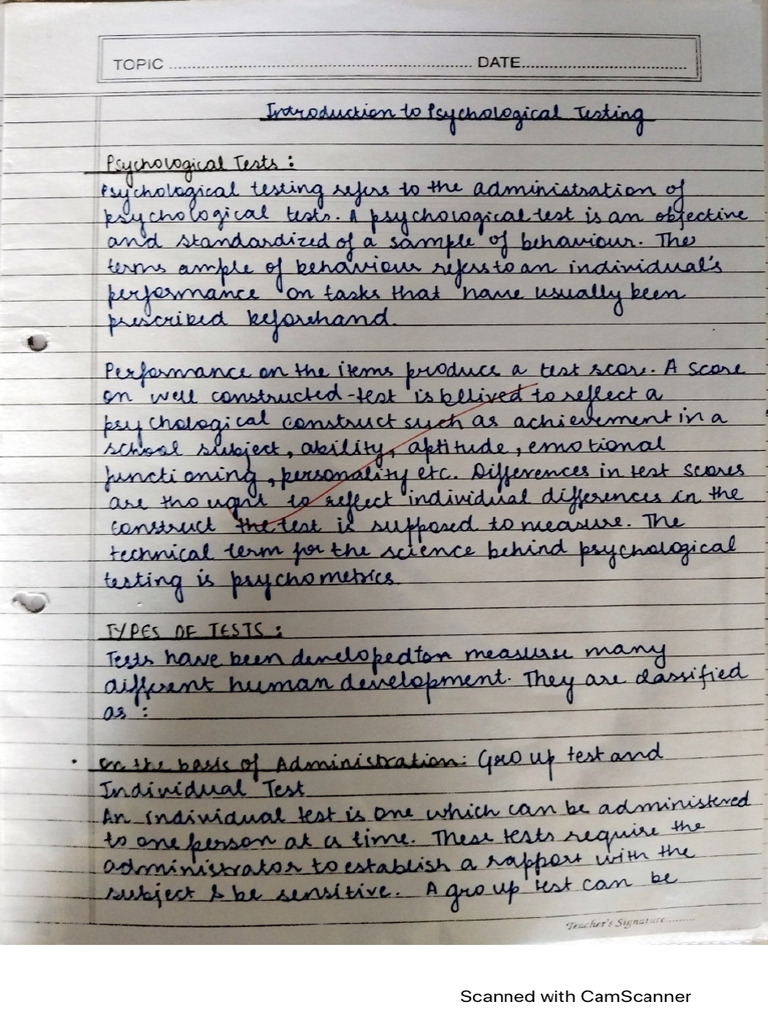 TOPIC ........................ DATE........................
Introduction to Psychological Testing
Psychological Tests :
Psychological testing refers to the administration of
psychological tests. A psychological test is an objective
and standardized of a sample of behaviour. The
terms ample of behaviour refers to an individual's
performance on tasks that have usually been
prescribed beforehand.
Performance on the items produce a test score. A score
on well constructed-test is bllived to reflect a
psychological construct such as achievement in a
school subject, ability, aptitude, emotional
functioning, personality etc. Differences in test scores
are thought to reflect individual differences in the
construct the test is supposed to measure. The
technical term for the science behind psychological
testing is psychometrics
TYPES OF TESTS :
Tests have been developedton measure many
different human development. They are classified
as :
• On the basis of Administration: Group test and
Individual Test
An individual test is one which can be administered
to one person at a time. These tests require the
administrator to establish a rapport with the
subject & be sensitive. A group test can be
Teacher's Signature.........
Scanned with CamScanner